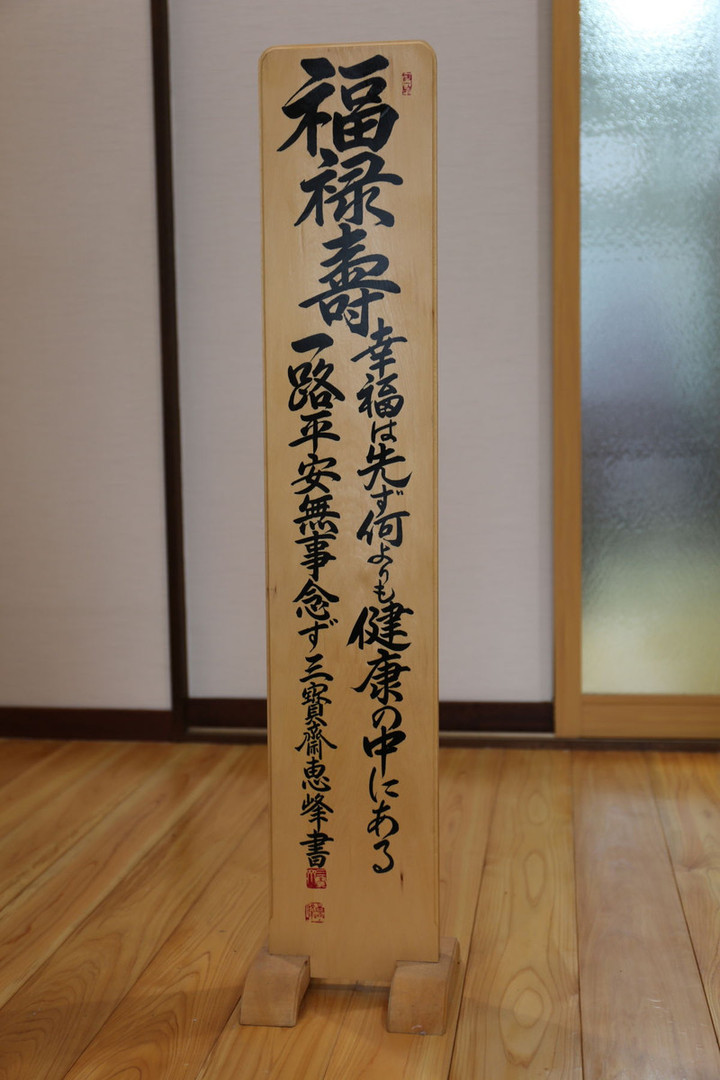 福禄壽
幸福は先ず何よりも健康の中にある
一路平安無事念ず三寳齋恵峰書